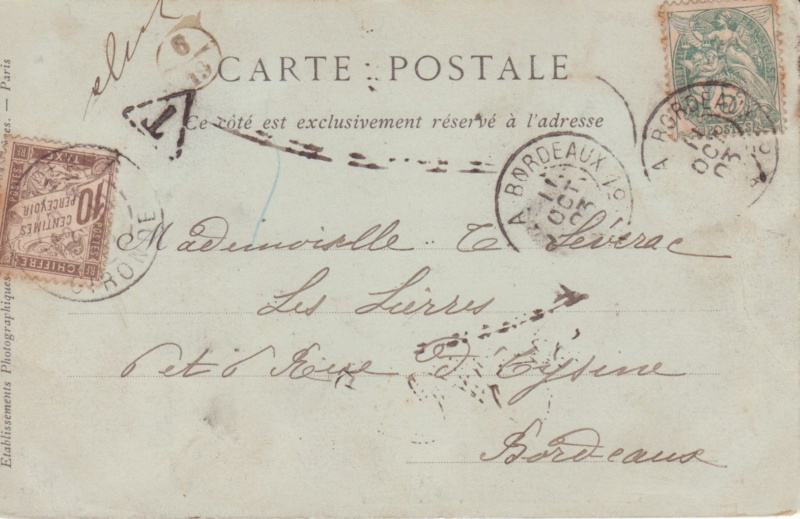 CARTE POSTALE
Ce côté est exclusivement réservé à l'adresse
T
6
A BORDEAUX
OCT
POSTES
A BORDEAUX
OCT
Mademoiselle C. Séverac
Les Lierres
6 et 6 Rue d'Eysine
Bordeaux
10
CENTIMES
PERCEVOIR
CHIFFRE
GIRONDE
Etablissements Photographiques — Paris